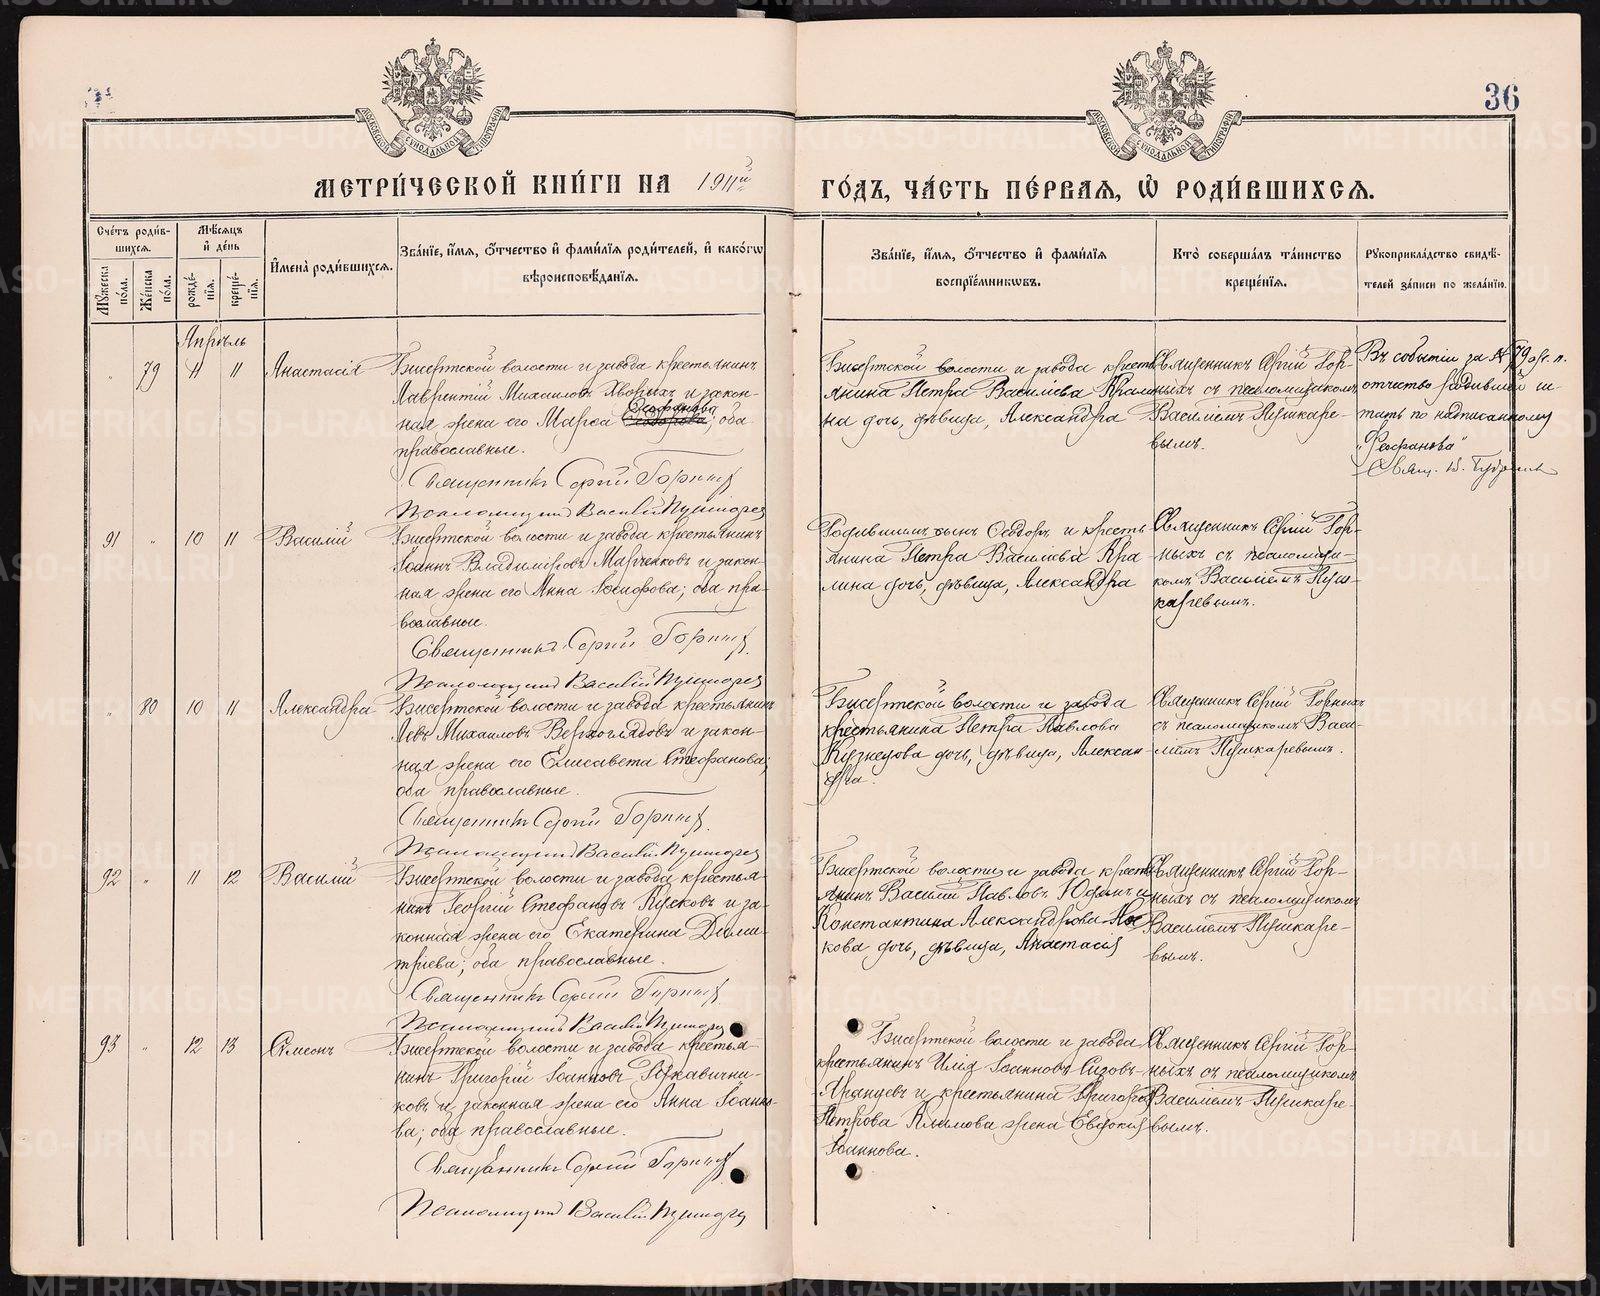 36
МЕТРИ́ЧЕСКОЙ КНИ́ГИ НА 1911й ГО́ДЪ, ЧА́СТЬ ПЕ́РВАЯ, Ѽ РОДИ́ВШИХСЯ.
Сче́тъ роди́вшихся.
Мꙋ́жеска по́ла.
Же́нска по́ла.
Мѣ́сяцъ и де́нь
рожде́нія.
креще́нія.
Имена̀ роди́вшихся.
Зва́ніе, и́мя, о́тчество и фами́лія роди́телей, и како́гѡ
вѣроисповѣ́данія.
Зва́ніе, и́мя, о́тчество и фами́лія
воспріе́мникѡвъ.
Кто̀ соверша́лъ та́инство
креще́нія.
Рꙋкоприкла́дство свидѣ́-
телей за́писи по жела́нію.
Апрѣль
79 11 11 Анастасія
Бисертской волости и завода крестьянинъ
Лаврентій Михаиловъ Хворыхъ и закон-
ная жена его Марѳа Стефанова, оба
православные.
Священникъ Сергій Горныхъ
Псаломщикъ Василій Пушкаревъ
Бисертской волости и завода кресть-
янина Петра Василіева Крали-
на дочь, дѣвица, Александра
Священникъ Сергій Гор-
ныхъ съ псаломщикомъ
Василіемъ Пушкаре-
вымъ.
отчество родившей чи-
тать по надписанному
91 " 10 11 Василій
Бисертской волости и завода крестьянинъ
Іоаннъ Владиміровъ Марченковъ и закон-
ная жена его Анна Іосифова; оба пра-
вославные.
Священникъ Сергій Горныхъ
Псаломщикъ Василій Пушкаревъ
Родившихъ сынъ Ѳеодоръ и кресть-
янина Петра Василіева Кра-
лина дочь, дѣвица, Александра
Священникъ Сергій Гор-
ныхъ съ псаломщи-
комъ Василіемъ Пуш-
каревымъ.
" 80 10 11 Александра
Бисертской волости и завода крестьянинъ
Левъ Михаиловъ Верхоглядовъ и закон-
ная жена его Елисавета Стефанова;
оба православные.
Священникъ Сергій Горныхъ
Псаломщикъ Василій Пушкаревъ
Бисертской волости и завода
крестьянина Петра Павлова
Кузнецова дочь, дѣвица, Алексан-
дра.
Священникъ Сергій Горныхъ
съ псаломщикомъ Васи-
ліемъ Пушкаревымъ.
92 " 11 12 Василій
Бисертской волости и завода крестья-
нинъ Георгій Стефановъ Пужковъ и за-
конная жена его Екатерина Дими-
тріева; оба православные.
Священникъ Сергій Горныхъ
Псаломщикъ Василій Пушкаревъ
Бисертской волости и завода кресть-
янинъ Василій Павловъ и
Константина Александрова
кова дочь, дѣвица, Анастасія
Священникъ Сергій Гор-
ныхъ съ псаломщикомъ
Василіемъ Пушкаре-
вымъ.
93 " 12 13 Симеонъ
Бисертской волости и завода крестья-
нинъ Григорій Іоанновъ Рукавични-
ковъ и законная жена его Анна Іоанно-
ва; оба православные.
Священникъ Сергій Горныхъ
Псаломщикъ Василій Пушкаревъ
Бисертской волости и завода
крестьянинъ Илія Іоанновъ
и крестьянина Григорія
Петрова Алимова жена Евдокія
Іоаннова.
Священникъ Сергій Гор-
ныхъ съ псаломщикомъ
Василіемъ Пушкаре-
вымъ.